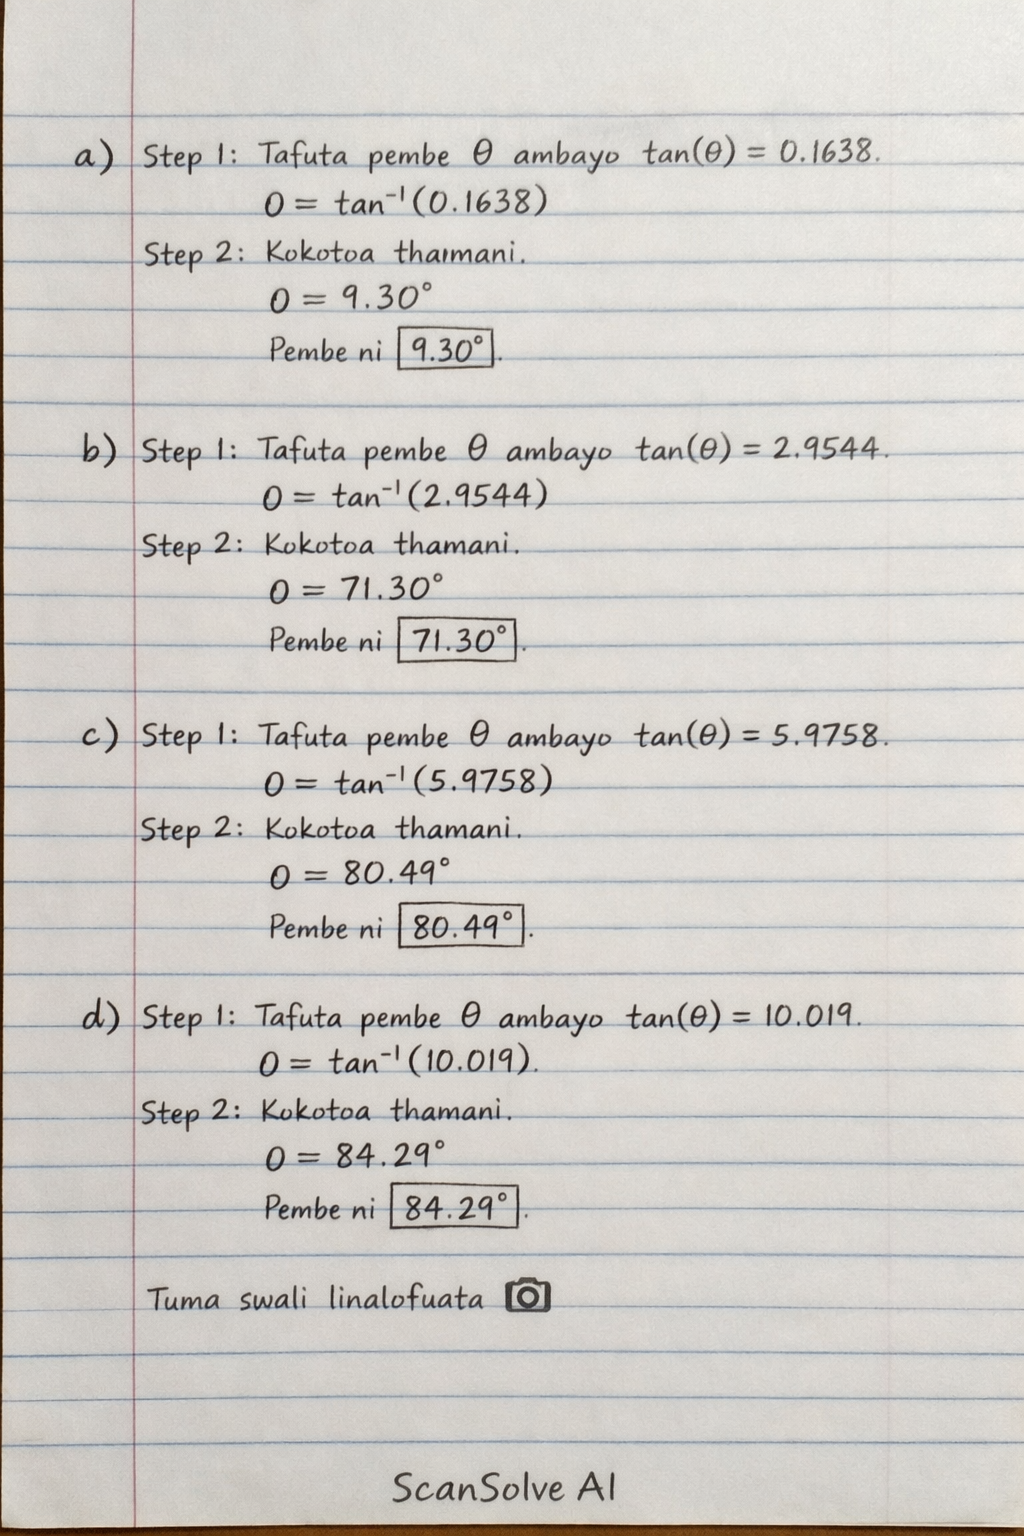 a) Step 1: Tafuta pembe θ ambayo tan(θ) = 0.1638.
0 = tan⁻¹(0.1638)
Step 2: Kokotoa thaımani.
0 = 9.30°
Pembe ni 9.30°.
b) Step 1: Tafuta pembe θ ambayo tan(θ) = 2.9544.
0 = tan⁻¹(2.9544)
Step 2: Kokotoa thamani.
0 = 71.30°
Pembe ni 71.30°.
c) Step 1: Tafuta pembe θ ambayo tan(θ) = 5.9758.
0 = tan⁻¹(5.9758)
Step 2: Kokotoa thamani.
0 = 80.49°
Pembe ni 80.49°.
d) Step 1: Tafuta pembe θ ambayo tan(θ) = 10.019.
0 = tan⁻¹(10.019).
Step 2: Kokotoa thamani.
0 = 84.29°
Pembe ni 84.29°.
Tuma swali linalofuata
ScanSolve AI